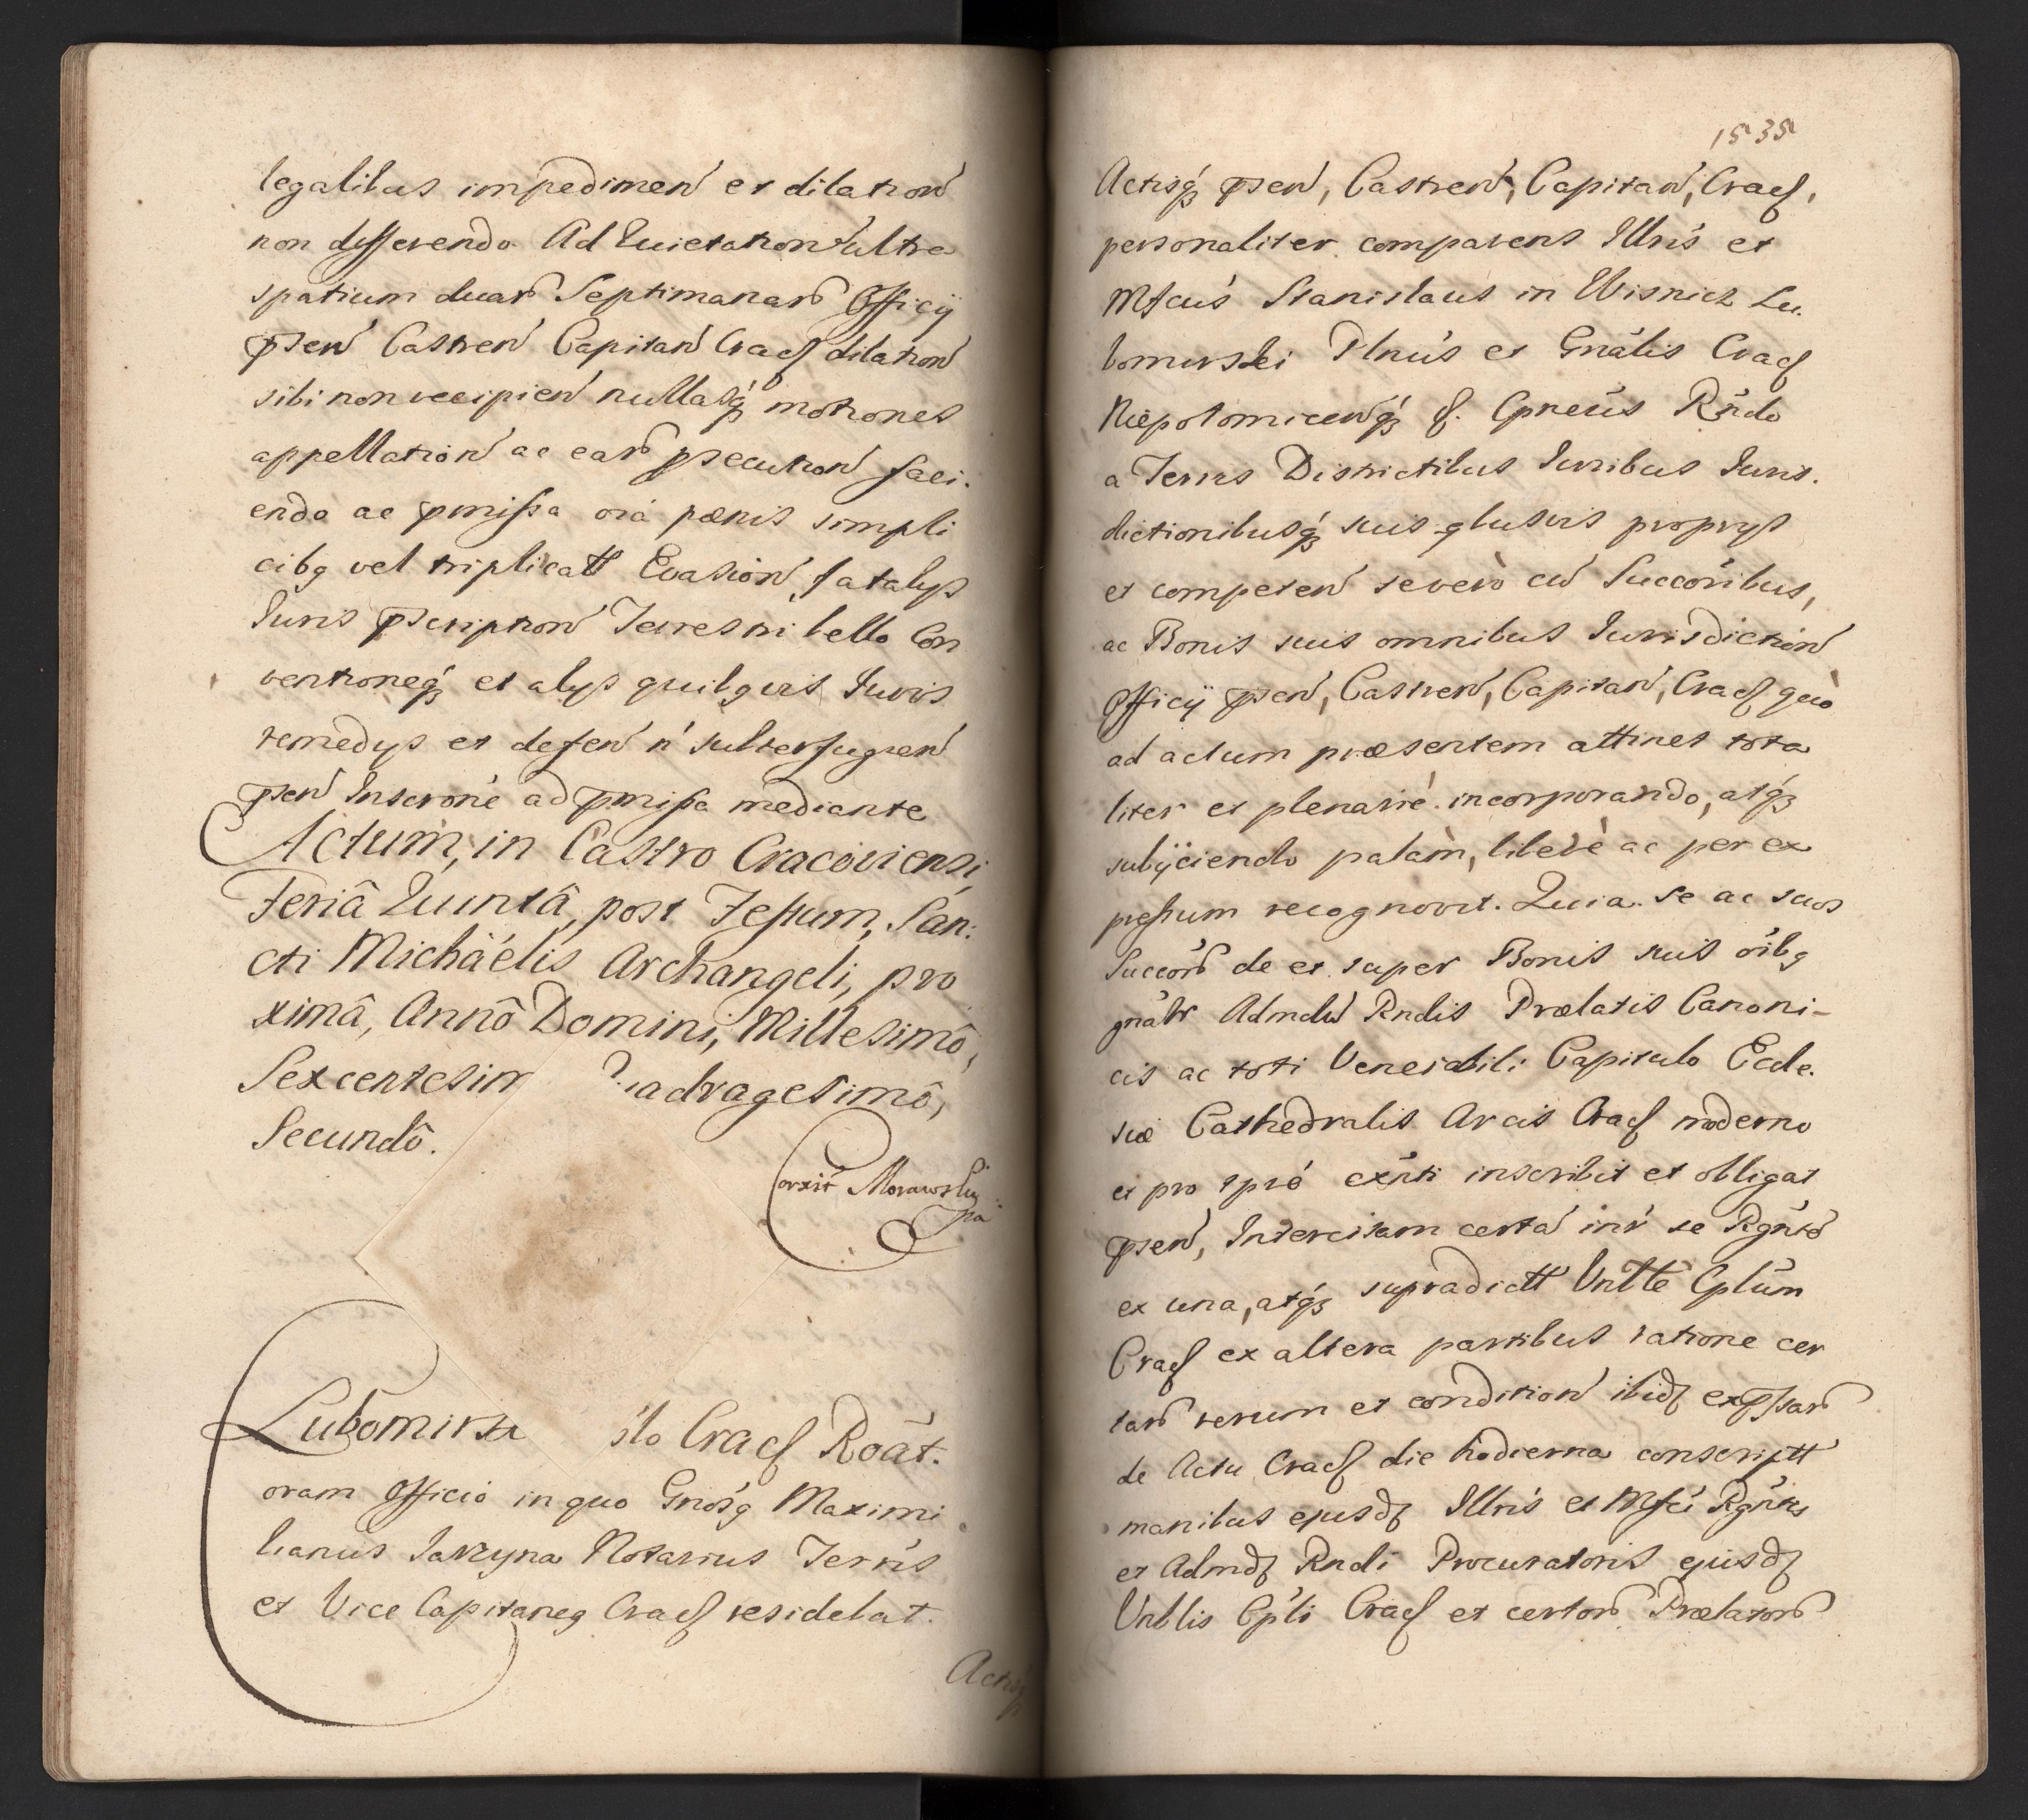 legalibus impedimen et dilation
non differendo Ad Quietation ultra
spatium duar Septimanar Officij
psen Castren Capitan Crac dilation
sibi non recipien nullasq motiones
appellation ac ear psecution faci.
endo ac pmissa oia pænis simpli
cibq vel triplicatt Evasion, fatalijs
Juris pscription Terrestri bello Con
ventioneq et alijs quibqvis Juris
remedijs et defen n subterfugien
psen Inscrone ad pmissa mediante
Actum, in Castro Cracoviensi,
Feriâ Quintâ, post Festum, San:
cti Michäelis Archangeli, pro
ximâ, Annô Domini, Millesimô,
Sexcentesim Quadragesimô,
Secundô.
Corxit Morawsky
mpa
Lubomirs slo Crac Roat.
oram Officio in quo Gnosq Maximi
lianus Jarzyna Notarius Terris
et Vice Capitaneq Crac residebat.
Actisq
1535
Actisq psen, Castren, Capitan, Crac,
personaliter comparens Illris et
Mfcus Stanislaus in Wisnicz Lu.
bomirski Plnus et Gnalis Crac
Niepolomicenq &. Cpneus Rndo
a Terris Districtibus Juribus Juris.
dictionibusq suis qbusvis proprijs
et competen severo cu Succoribus,
ac Bonis suis omnibus Jurisdiction
Officij psen, Castren, Capitan, Crac quò
ad actum præsentem attinet tota
liter et plenariè incorporando, atq
subijciendo palàm, liberè ac per ex
pressum recognovit. Quia se ac suos
Succor de et super Bonis suis oibq
gnalr Admdu Rndis Prælatis Canoni-
cis ac toti Venerabili Capitulo Eccle.
siæ Cathedralis Arcis Crac moderno
et pro tpre exnti inscribit et obligat
psen, Intercisam certa intr se Rgnto
ex una, atq supradictt Vnble Cplum
Crac ex altera partibus ratione cer
tar rerum et condition ibid expssar
de Actu Crac die hodierna conscriptt
manibus ejusd Illris et Mfci Rgntis
et Admd Rndi Procuratoris ejusd
Vnblis Cpli Crac et certor Prælator